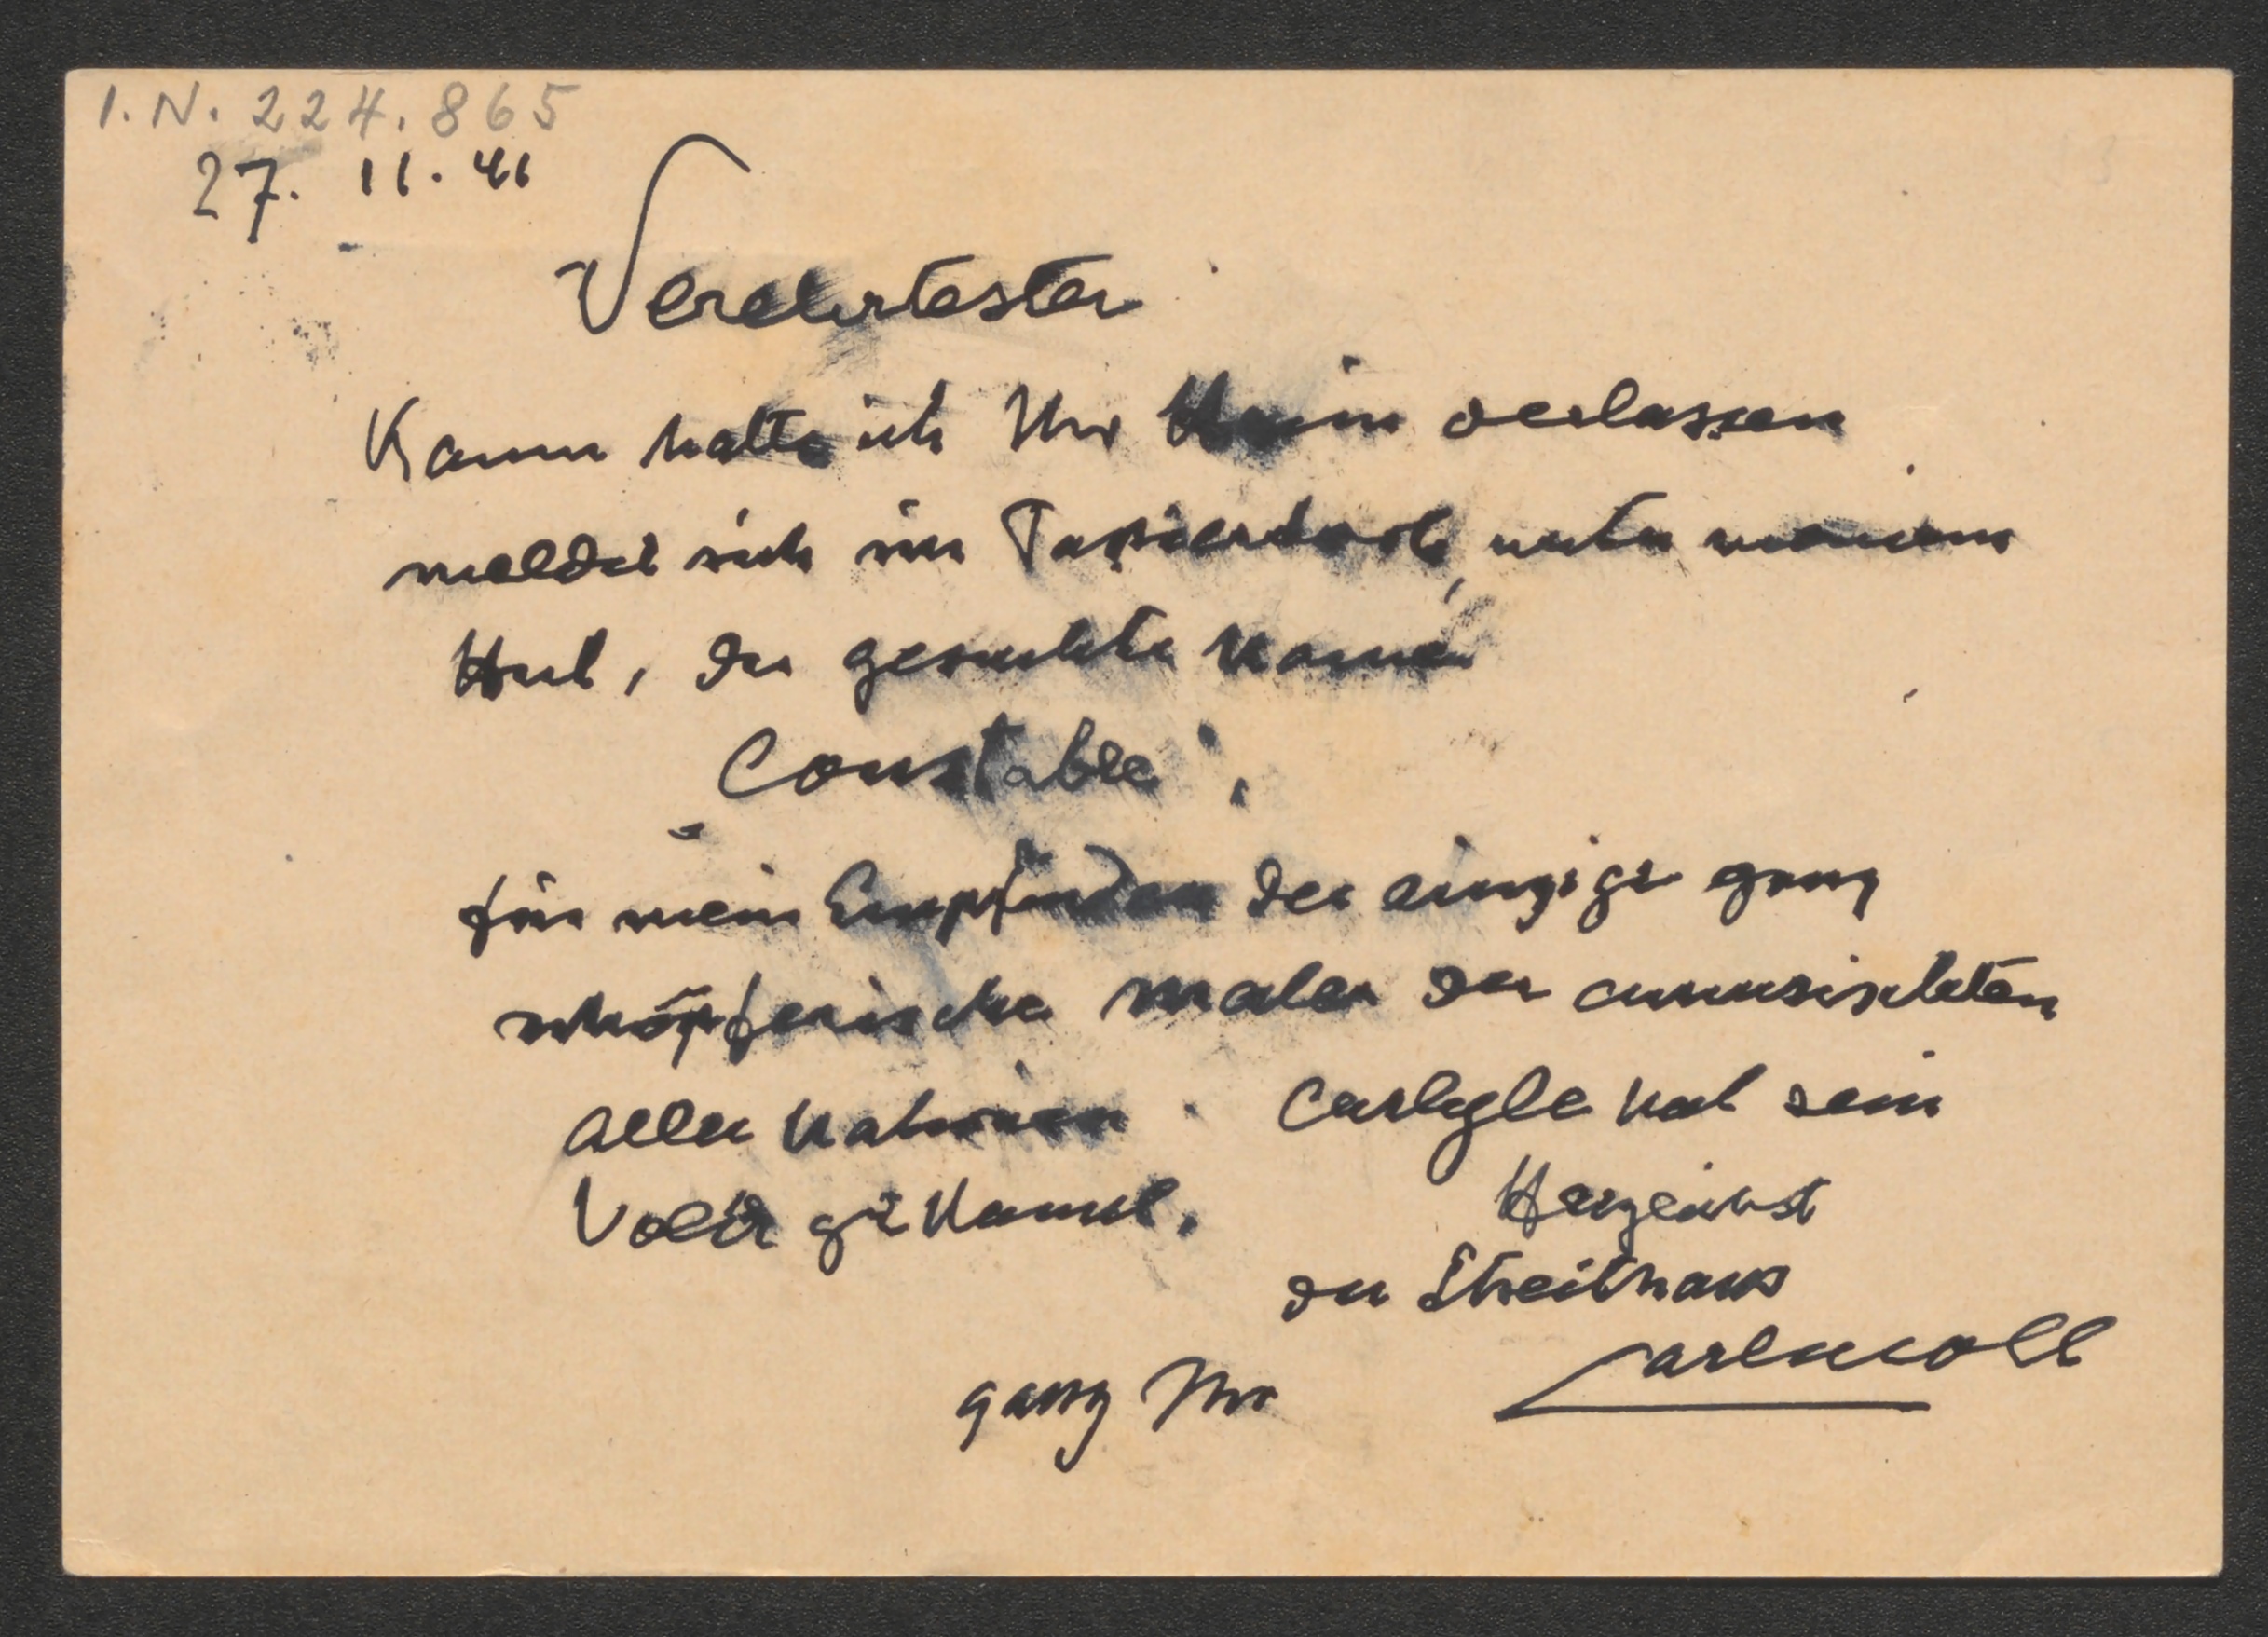 I.N. 224.865
27. 11. 41
Verehrtester
Kaum hatte ich Ihr Heim verlassen
meldet sich im Papierkorb, unter meinem
Hut, der gesuchte Name
„Constable",
für mein Empfinden der einzige ganz
schöpferische Maler der amusischten
aller Nationen. Carlyle hat sein
Volk gekannt.
Herzlichst
der Streithans
ganz Ihr
Carl Moll